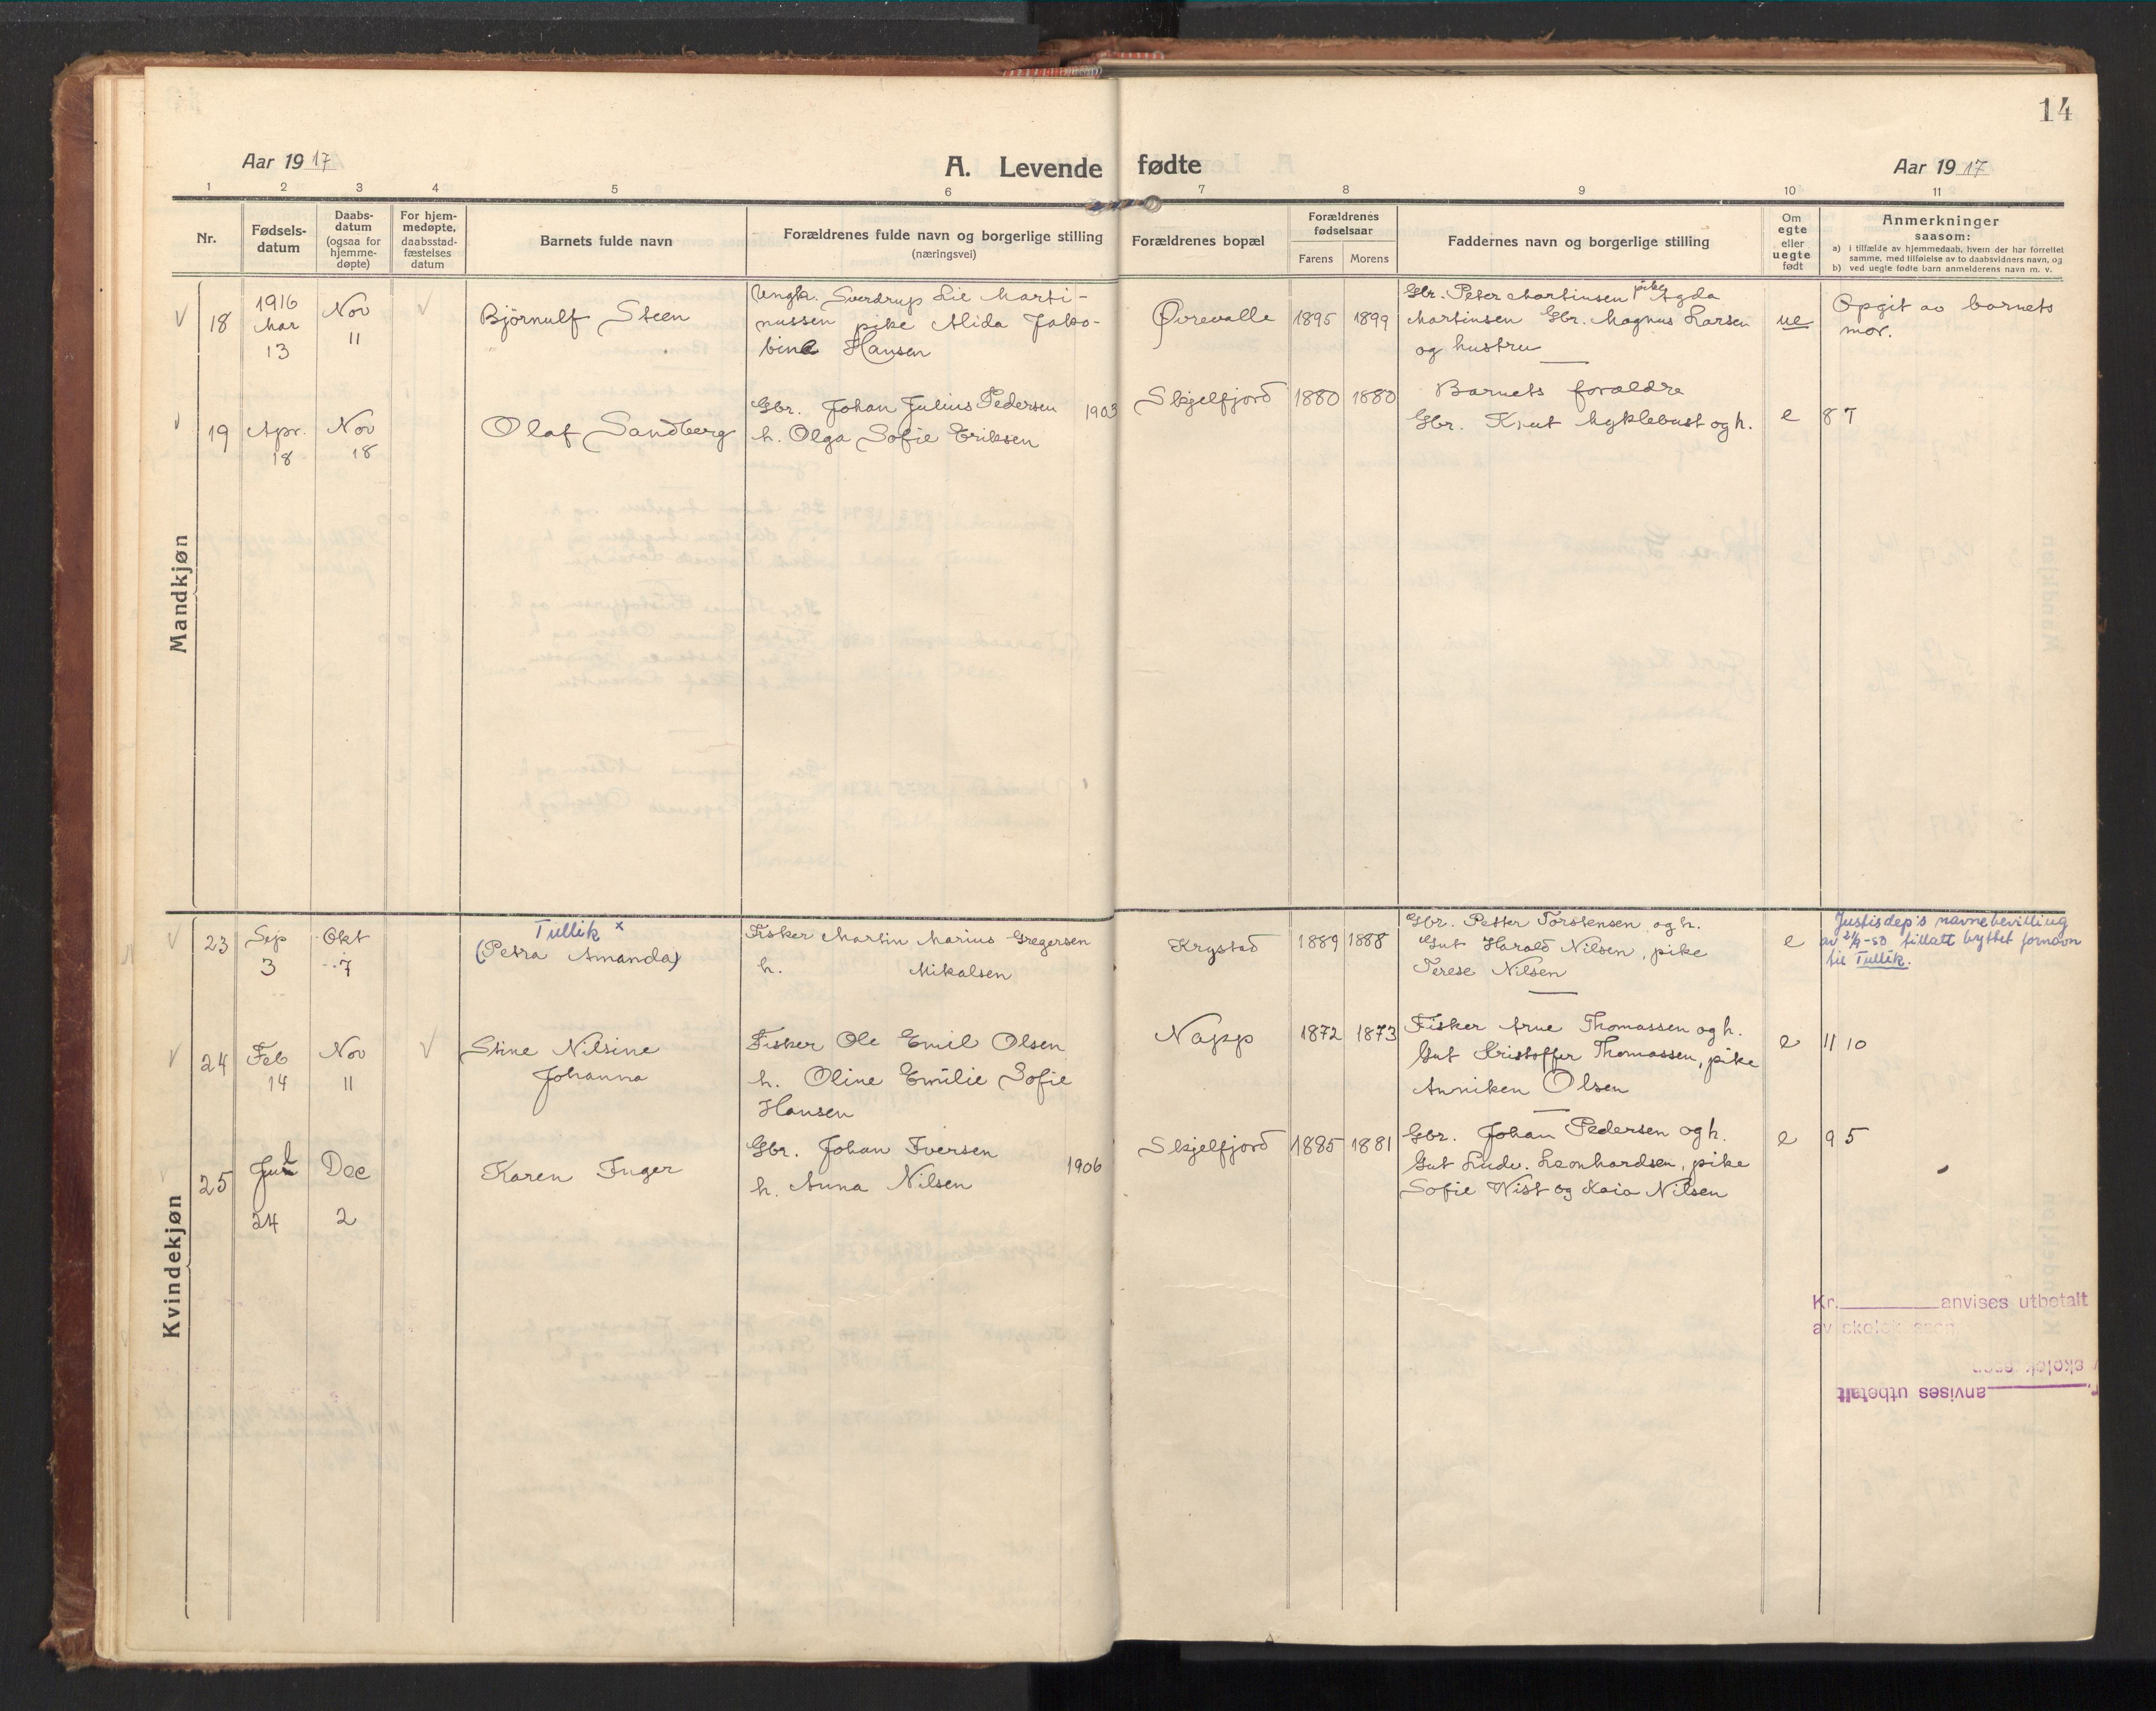 14
Aar 1917
A. Levende fødte
Aar 1917
1 2 3 4 5 6 7 8 9 10 11
Nr.
Fødsels-
datum
Daabs-
datum
(ogsaa for
hjemme-
døpte)
For hjem-
medøpte,
daabsstad-
fæstelses
datum
Barnets fulde navn
Forældrenes fulde navn og borgerlige stilling
(næringsvei)
Forældrenes bopæl
Forældrenes
fødselsaar
Farens Morens
Faddernes navn og borgerlige stilling
Om
egte
eller
uegte
født
Anmerkninger
saasom:
a) i tilfælde av hjemmedaab, hvem der har forrettet
samme, med tilføielse av to daabsvidners navn, og
b) ved uegte fødte barn anmelderens navn m. v.
Mandkjøn
18
1916
Mar
13
Nov
11
Bjørnulf Steen
Ungk. Sverdrup Lie Marti-
nussen pike Alida Jako-
bine Hansen
Øvrevalle
1895 1899
Gbr. Peter Martinsen pike Agda
Martinsen Gbr. Magnus Larsen
og hustru
ue
Opgit av barnets
mor.
19
Apr.
18
Nov
18
Olaf Sandberg
Gbr. Johan Julius Pedersen 1903
h. Olga Sofie Eriksen
Skjelfjord
1880 1880
Barnets forældre
Gbr. Knut Myklebust og h.
e
8 7
Kvindekjøn
23
Sep
3
Okt
7
Tullik x
(Petra Amanda)
Fisker Martin Marius Gregersen
h. Mikalsen
Krystad
1889 1888
Gbr. Petter Torstensen og h.
Gut Harald Nilsen, pike
Terese Nilsen
e
Justisdep's navnebevilling
av 21/9-50 tillatt byttet fornavn
til Tullik.
24
Feb
14
Nov
11
Stine Nilsine
Johanna
Fisker Ole Emil Olsen
h. Oline Emilie Sofie
Hansen
Napp
1872 1873
Fisker Arne Thomassen og h.
Gut Kristoffer Thomassen, pike
Anniken Olsen
e
11 10
25
Jul
24
Dec
2
Karen Inger
Gbr. Johan Iversen
h. Anna Nilsen 1906
Skjelfjord
1885 1881
Gbr. Johan Pedersen og h.
Gut Ludv. Leonhardsen, pike
Sofie Wist og Kaia Nilsen
e
9 5
Kr. anvises utbetalt
av
anvises utbetalt